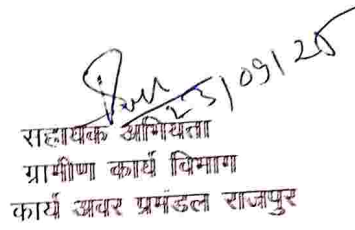 23/09/25
सहायक अभियंता
ग्रामीण कार्य विभाग
कार्य अवर प्रमंडल राजपुर